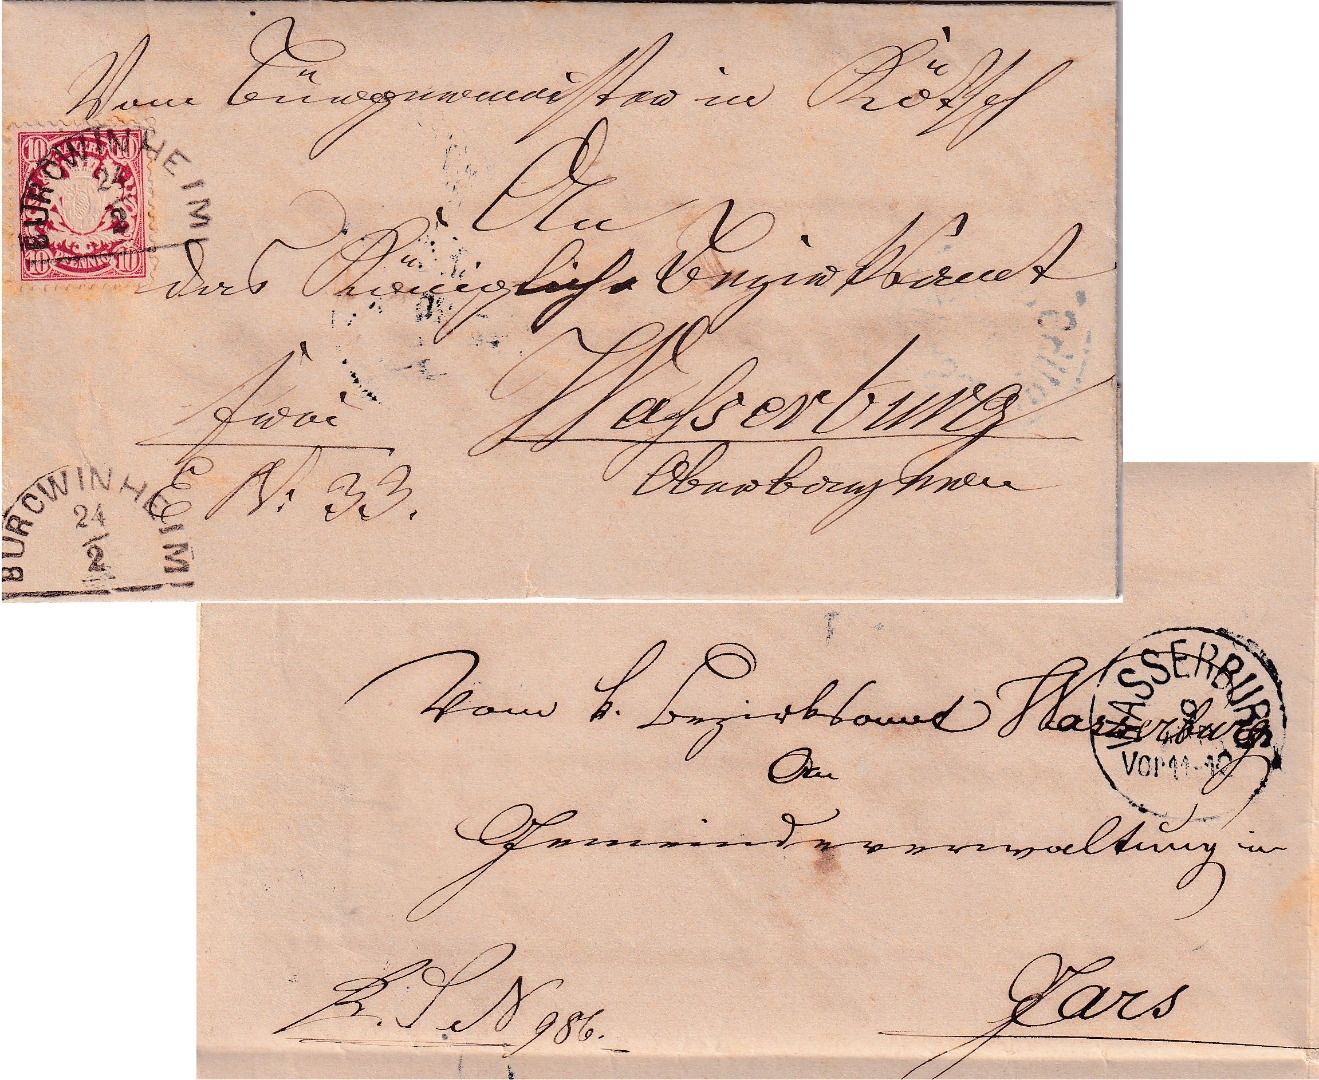 Vom Bürgermeister in
An
das Königliche Bezirksamt
frei
Wasserburg
E N. 33.
Oberbayern
10 10
10 PFENNIG 10
BURGWINHEIM
24
2
BURGWINHEIM
24
2
Vom k. Bezirksamt Wasserburg
An
Gemeindeverwaltung in
Gars
R. S. N 986.
WASSERBURG
9
Vor 11-12